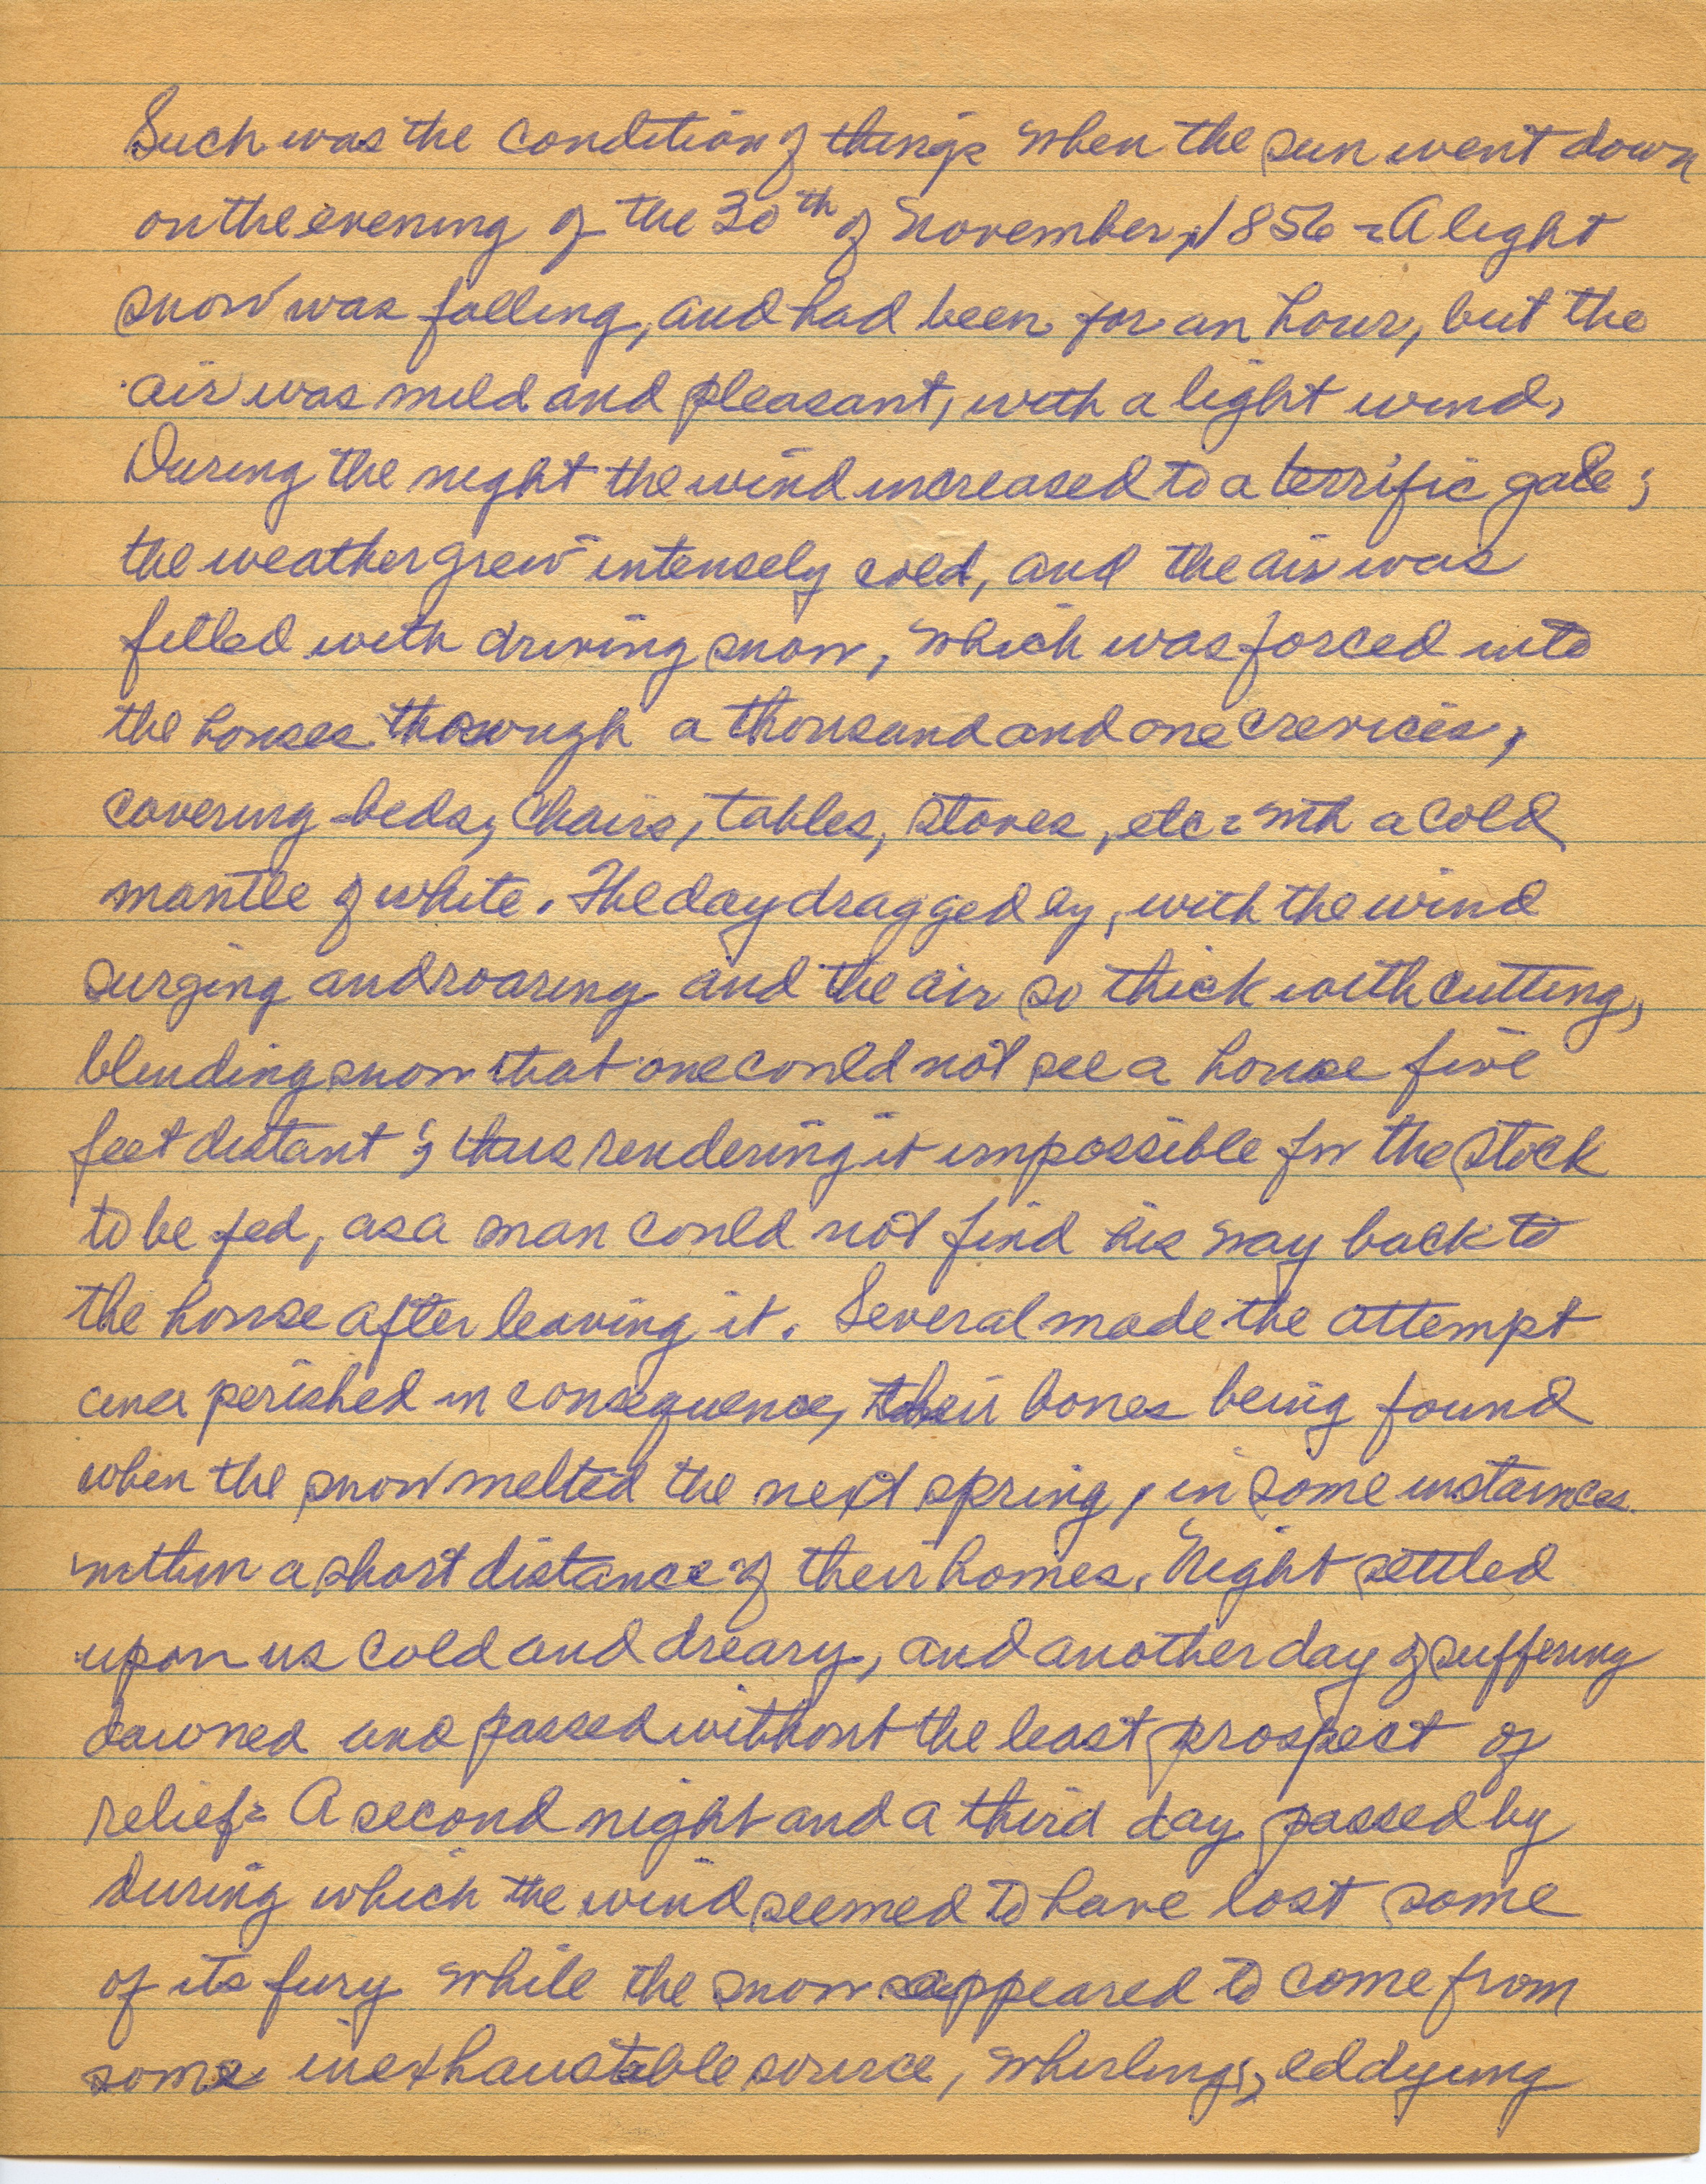 Such was the condition of things when the sun went down
on the evening of the 30th of November, 1856 - A light
snow was falling, and had been for an hour, but the
air was mild and pleasant, with a light wind.
During the night the wind increased to a terrific gale;
the weather grew intensely cold, and the air was
filled with driving snow, which was forced into
the houses through a thousand and one crevices,
covering beds, chairs, tables, stoves, etc - with a cold
mantle of white. The day dragged by, with the wind
surging and roaring and the air so thick with cutting,
blinding snow that one could not see a house five
feet distant; thus rendering it impossible for the stock
to be fed, as a man could not find his way back to
the house after leaving it. Several made the attempt
and perished in consequence, their bones being found
when the snow melted the next spring, in some instances
within a short distance of their homes. Night settled
upon us cold and dreary, and another day of suffering
dawned and passed without the least prospect of
relief - A second night and a third day passed by
during which the wind seemed to have lost some
of its fury while the snow appeared to come from
some inexhaustable source, whirling, eddying